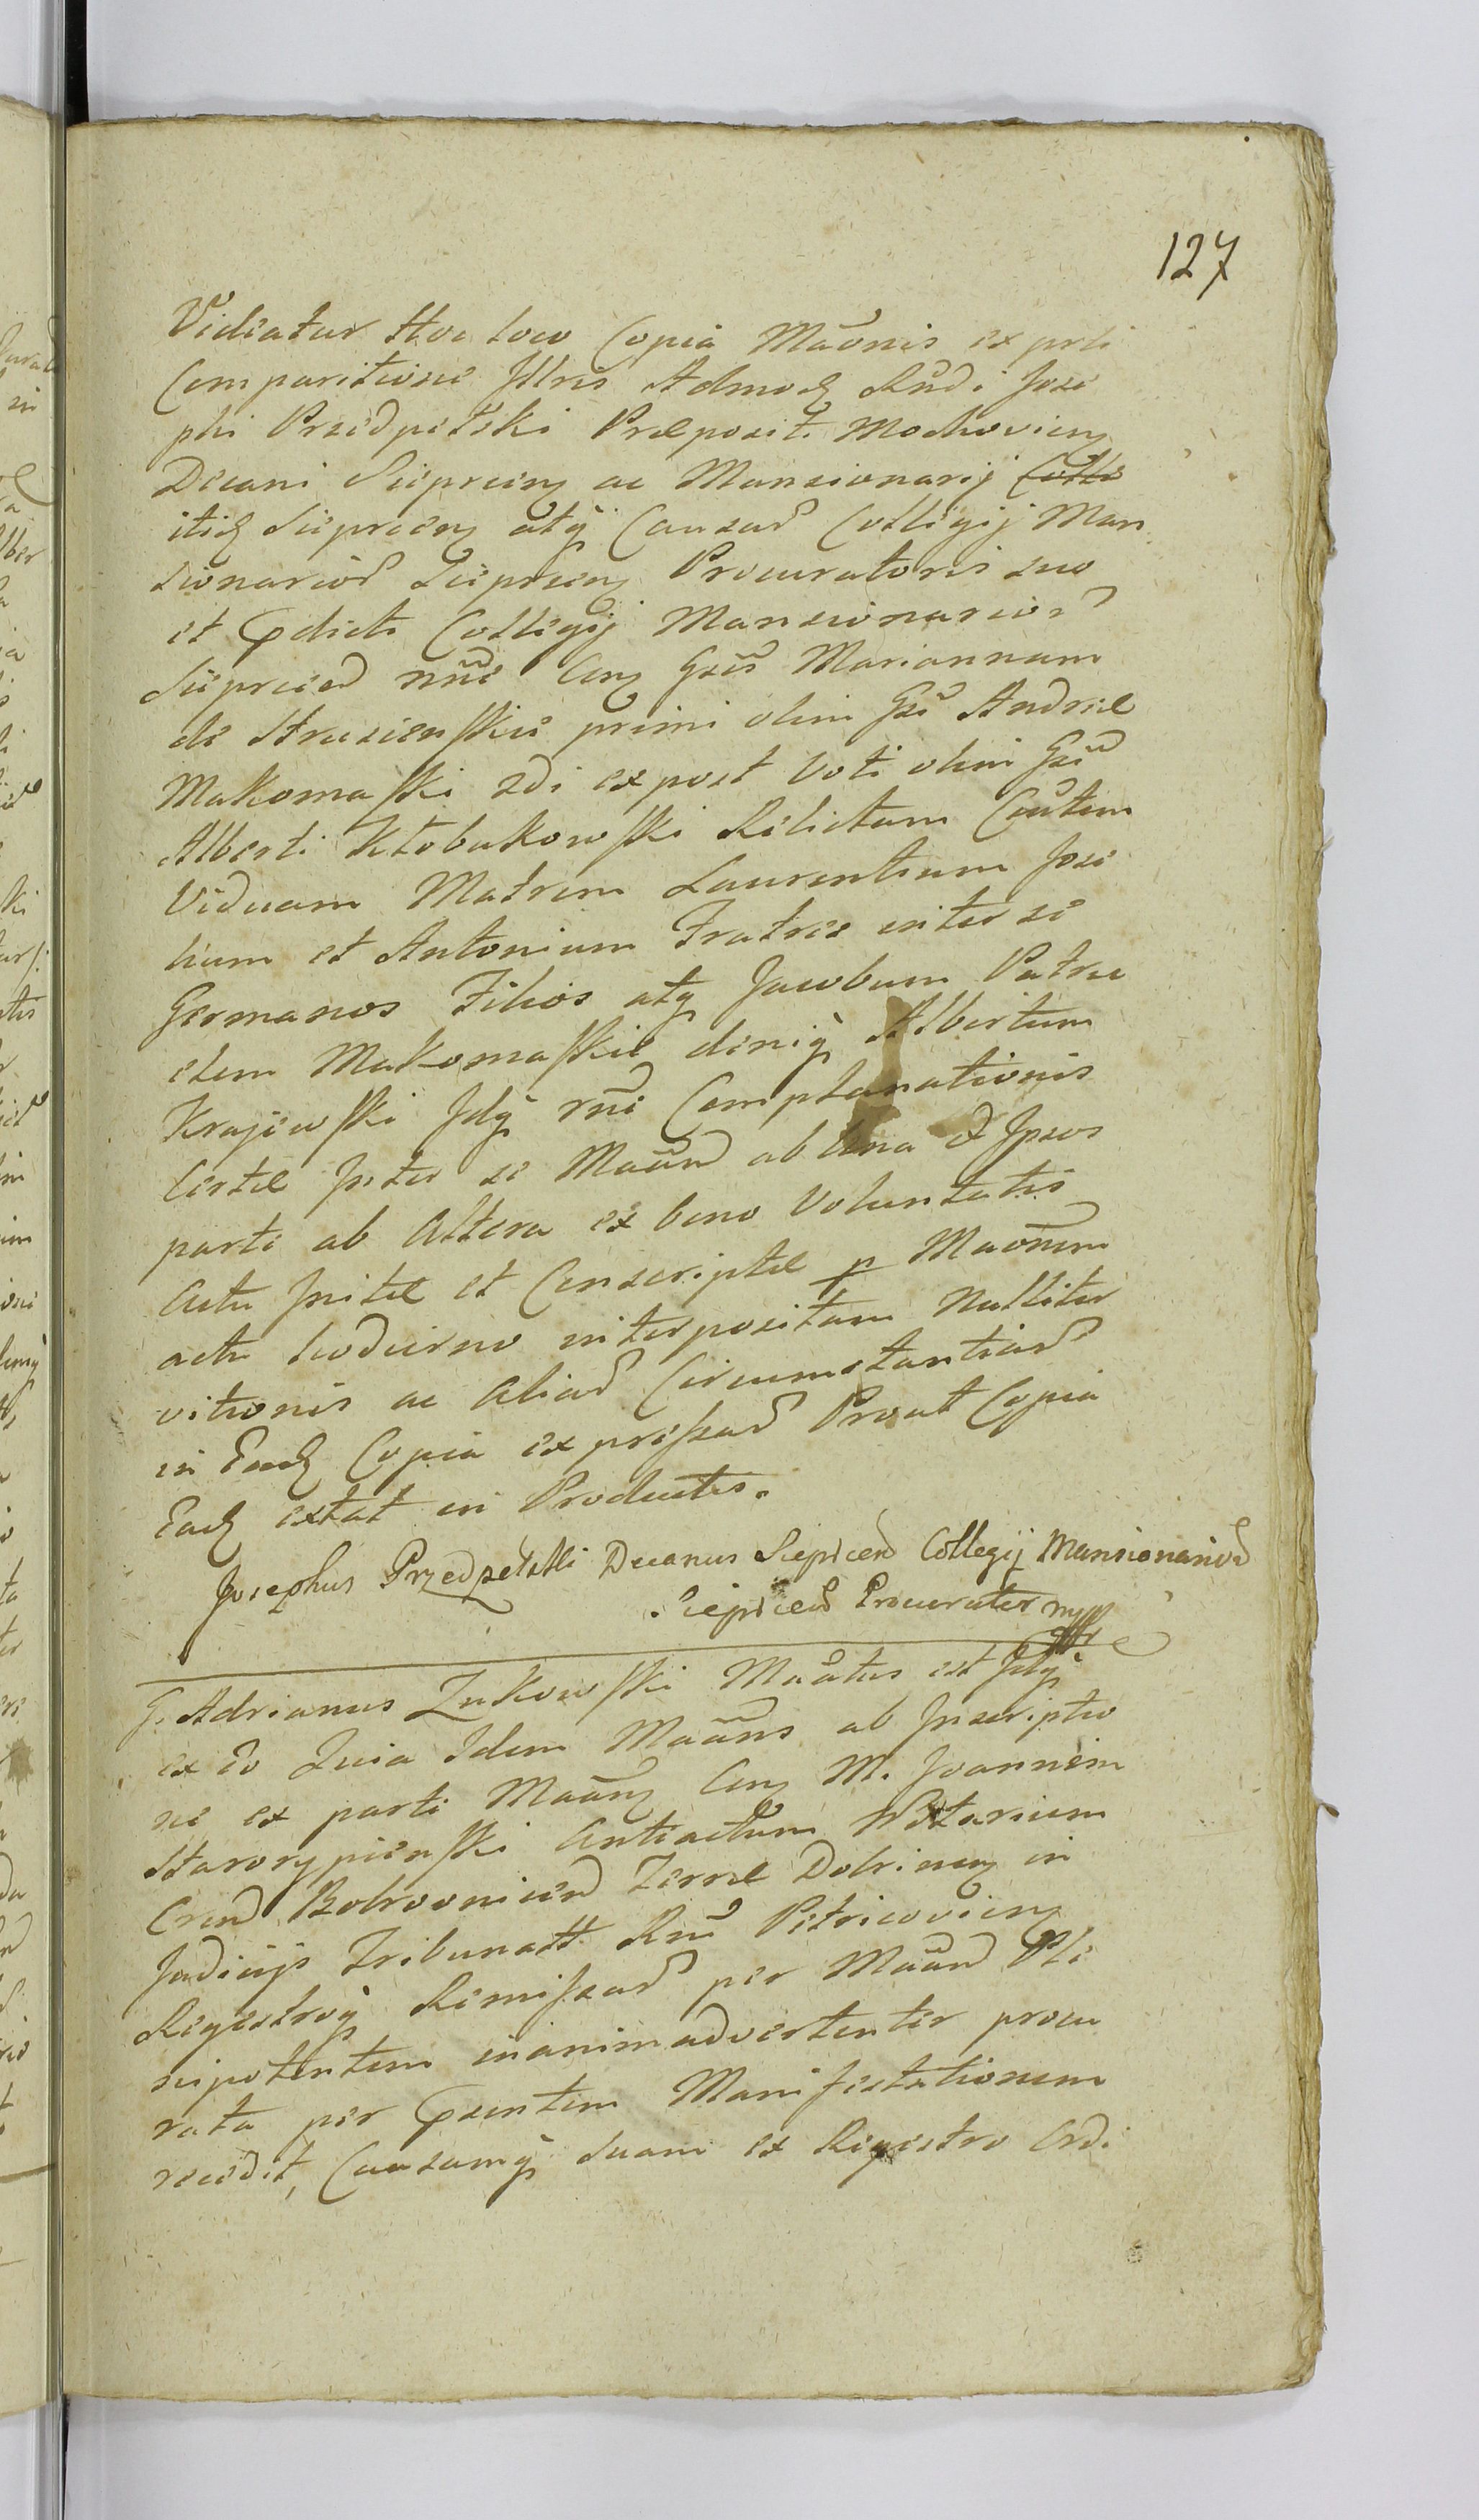 127
Videatur Hoc loco Copia Mãonis ex prli
Comparitione Jllris Admoq Rñdi Jose
phi Przedpełski Præpositi Mochovieng
Decani Sieprceng ac Mansionarij Colle
itiq Sieprceng atq Causar Collegij Man
sionarior Sieprceng Procuratoris suo
et Pdicti Collegij Mansionarior
Sieprcen nñe Cong Gsũ Mariannam
de Strusienskie primi olim Gsi Andreæ
Makomaski 2di ex post Voti olim Gsi
Alberti Kłobukowski Relictam Cõutem
Viduam Matrem Laurentium Jose
hum et Antonium Fratres inter se
Germanos Filios atq Jacobum Patru
elem Makomaskie deniq Albertum
Krajewski Jdq rñe Complanationis
Certæ Jnter se Mãan ab Una & Jpsos
parte ab Altera ex bono Voluntatis
Actu Jnitæ et Conscriptæ p Maõnem
actu hodierno interpositam Nulliter
vitionis ac Aliar Circumstantiar
in Eadq Copia expressar Prout Copia
Eadq extat in Productis.
Josephus Przedpełski Decanus Siepicen Collegij Mansionarior
Siepicen Procurator mpp
G. Adrianus Zukowski Mãatus est Jdq
ex Eo Quia Idem Mãans ab Jnscriptio
ne ex parte Mãang Cong M. Joannem
Starorypienski Antiactum Notarium
Cren Bobrovnicen Terræ Dobrineng in
Judicijs Tribunatt Rñi Petricovieng
Regestroq Remissar per Mãan Ple
nipotentem inanimadvertenter procu
rata per Psentem Manifestationem
recedit, Causamq Suam ex Regestro Ordi